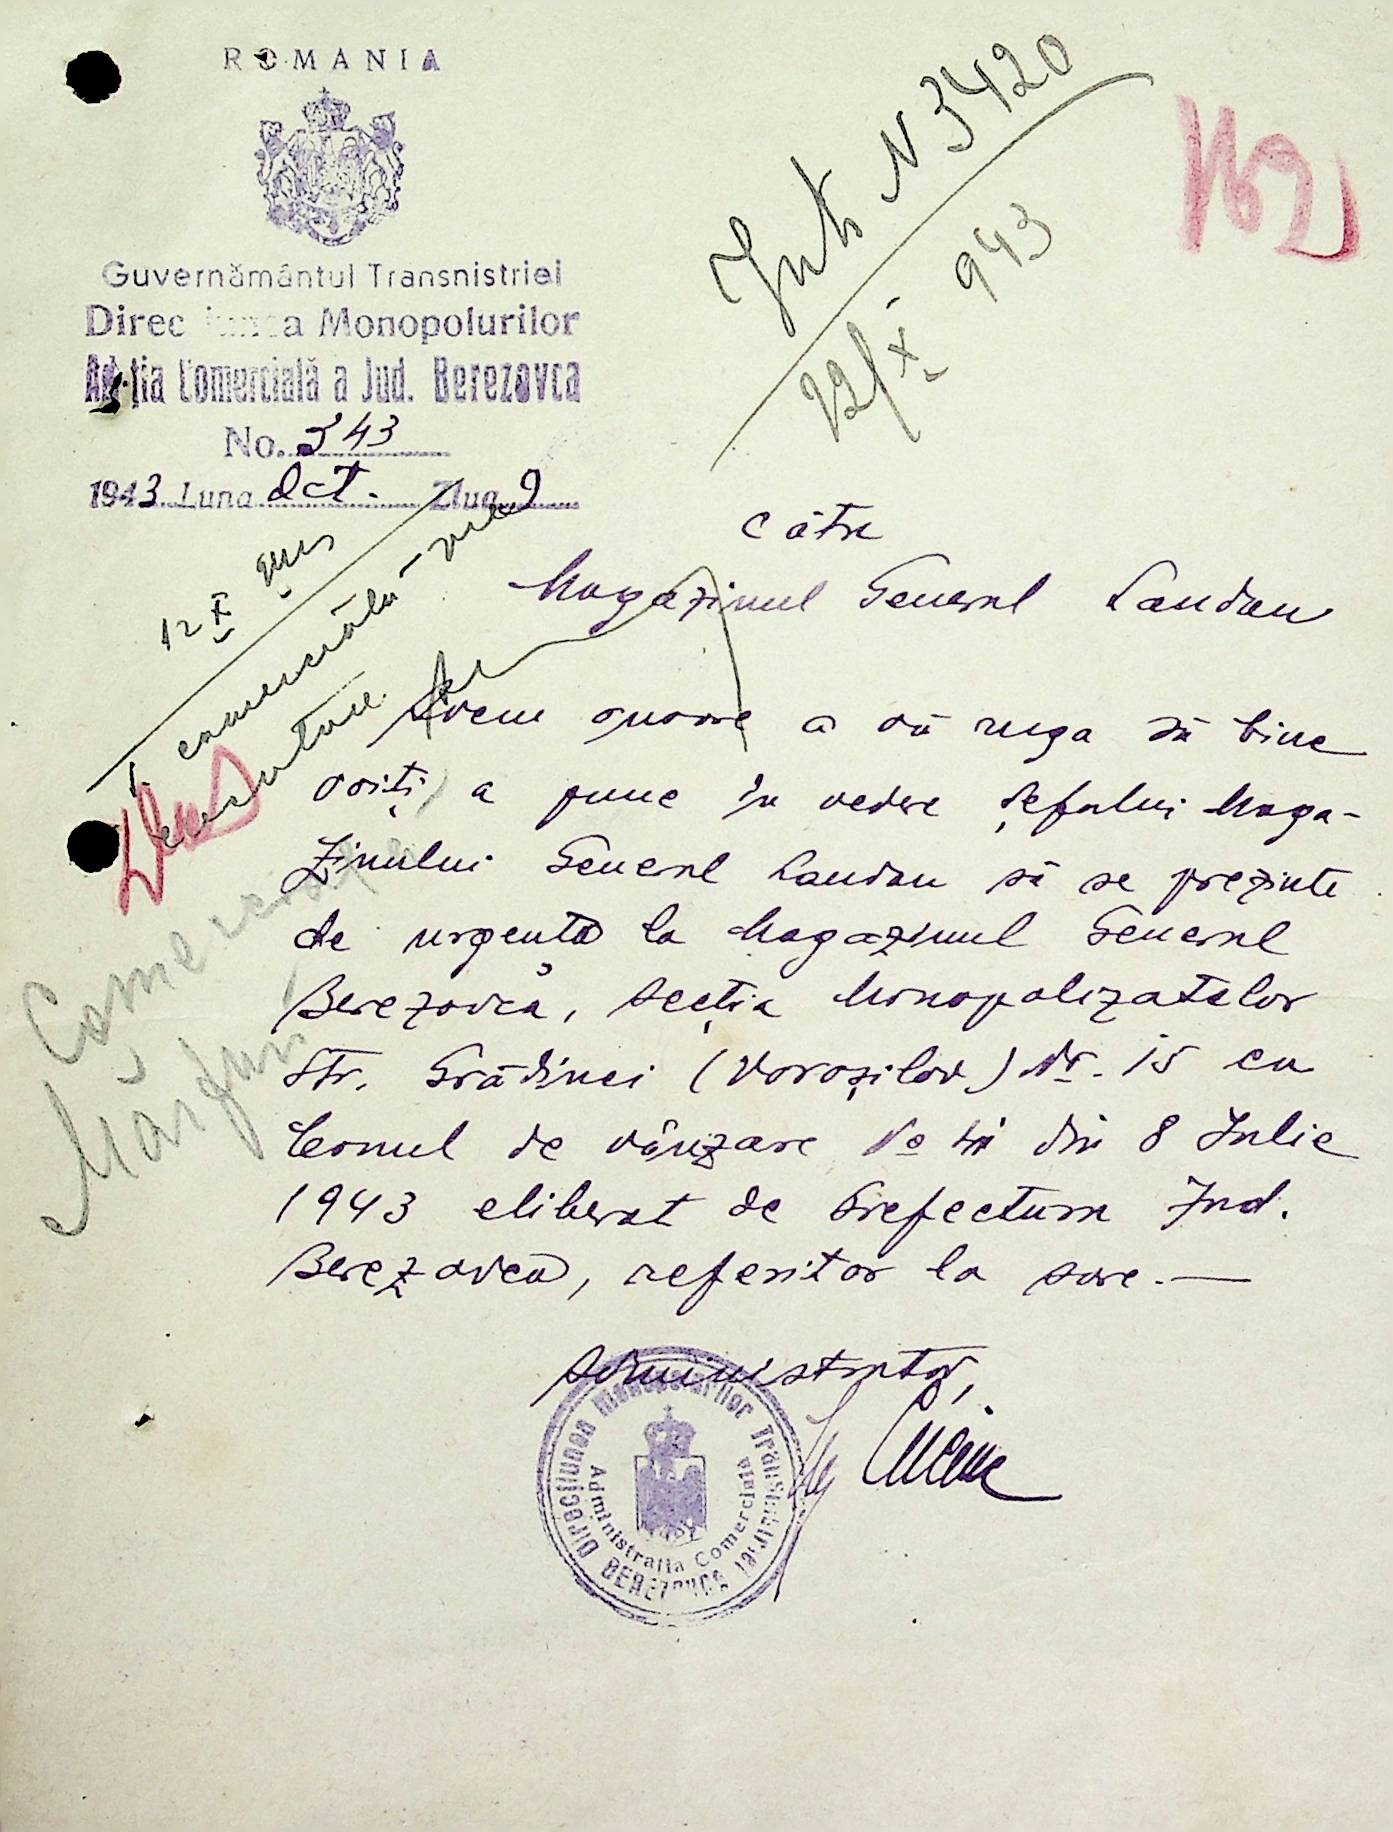 ROMANIA
Guvernământul Transnistriei
Direcțiunea Monopolurilor
Ad-ția Comercială a Jud. Berezovca
No. 343
1943 Luna Oct. Ziua 9
N 3420
12/X 943
162
12 X
comercială
Comercială
Mărfuri
Către
Magazinul General Landau
Avem onoare a vă ruga să bine
voiți a pune în vedere șefului Maga-
zinului General Landau să se prezinte
de urgență la Magazinul General
Berezovca, Secția Monopolizatelor
Str. Grădinei (Voroșilov) Nr. 15 cu
bonul de vânzare No din 8 Iulie
1943 eliberat de Prefectura Jud.
Berezovca, referitor la sare.—
Administrator,
Direcțiunea Monopolurilor Transnistriei
Administrația Comercială
BEREZOVCA